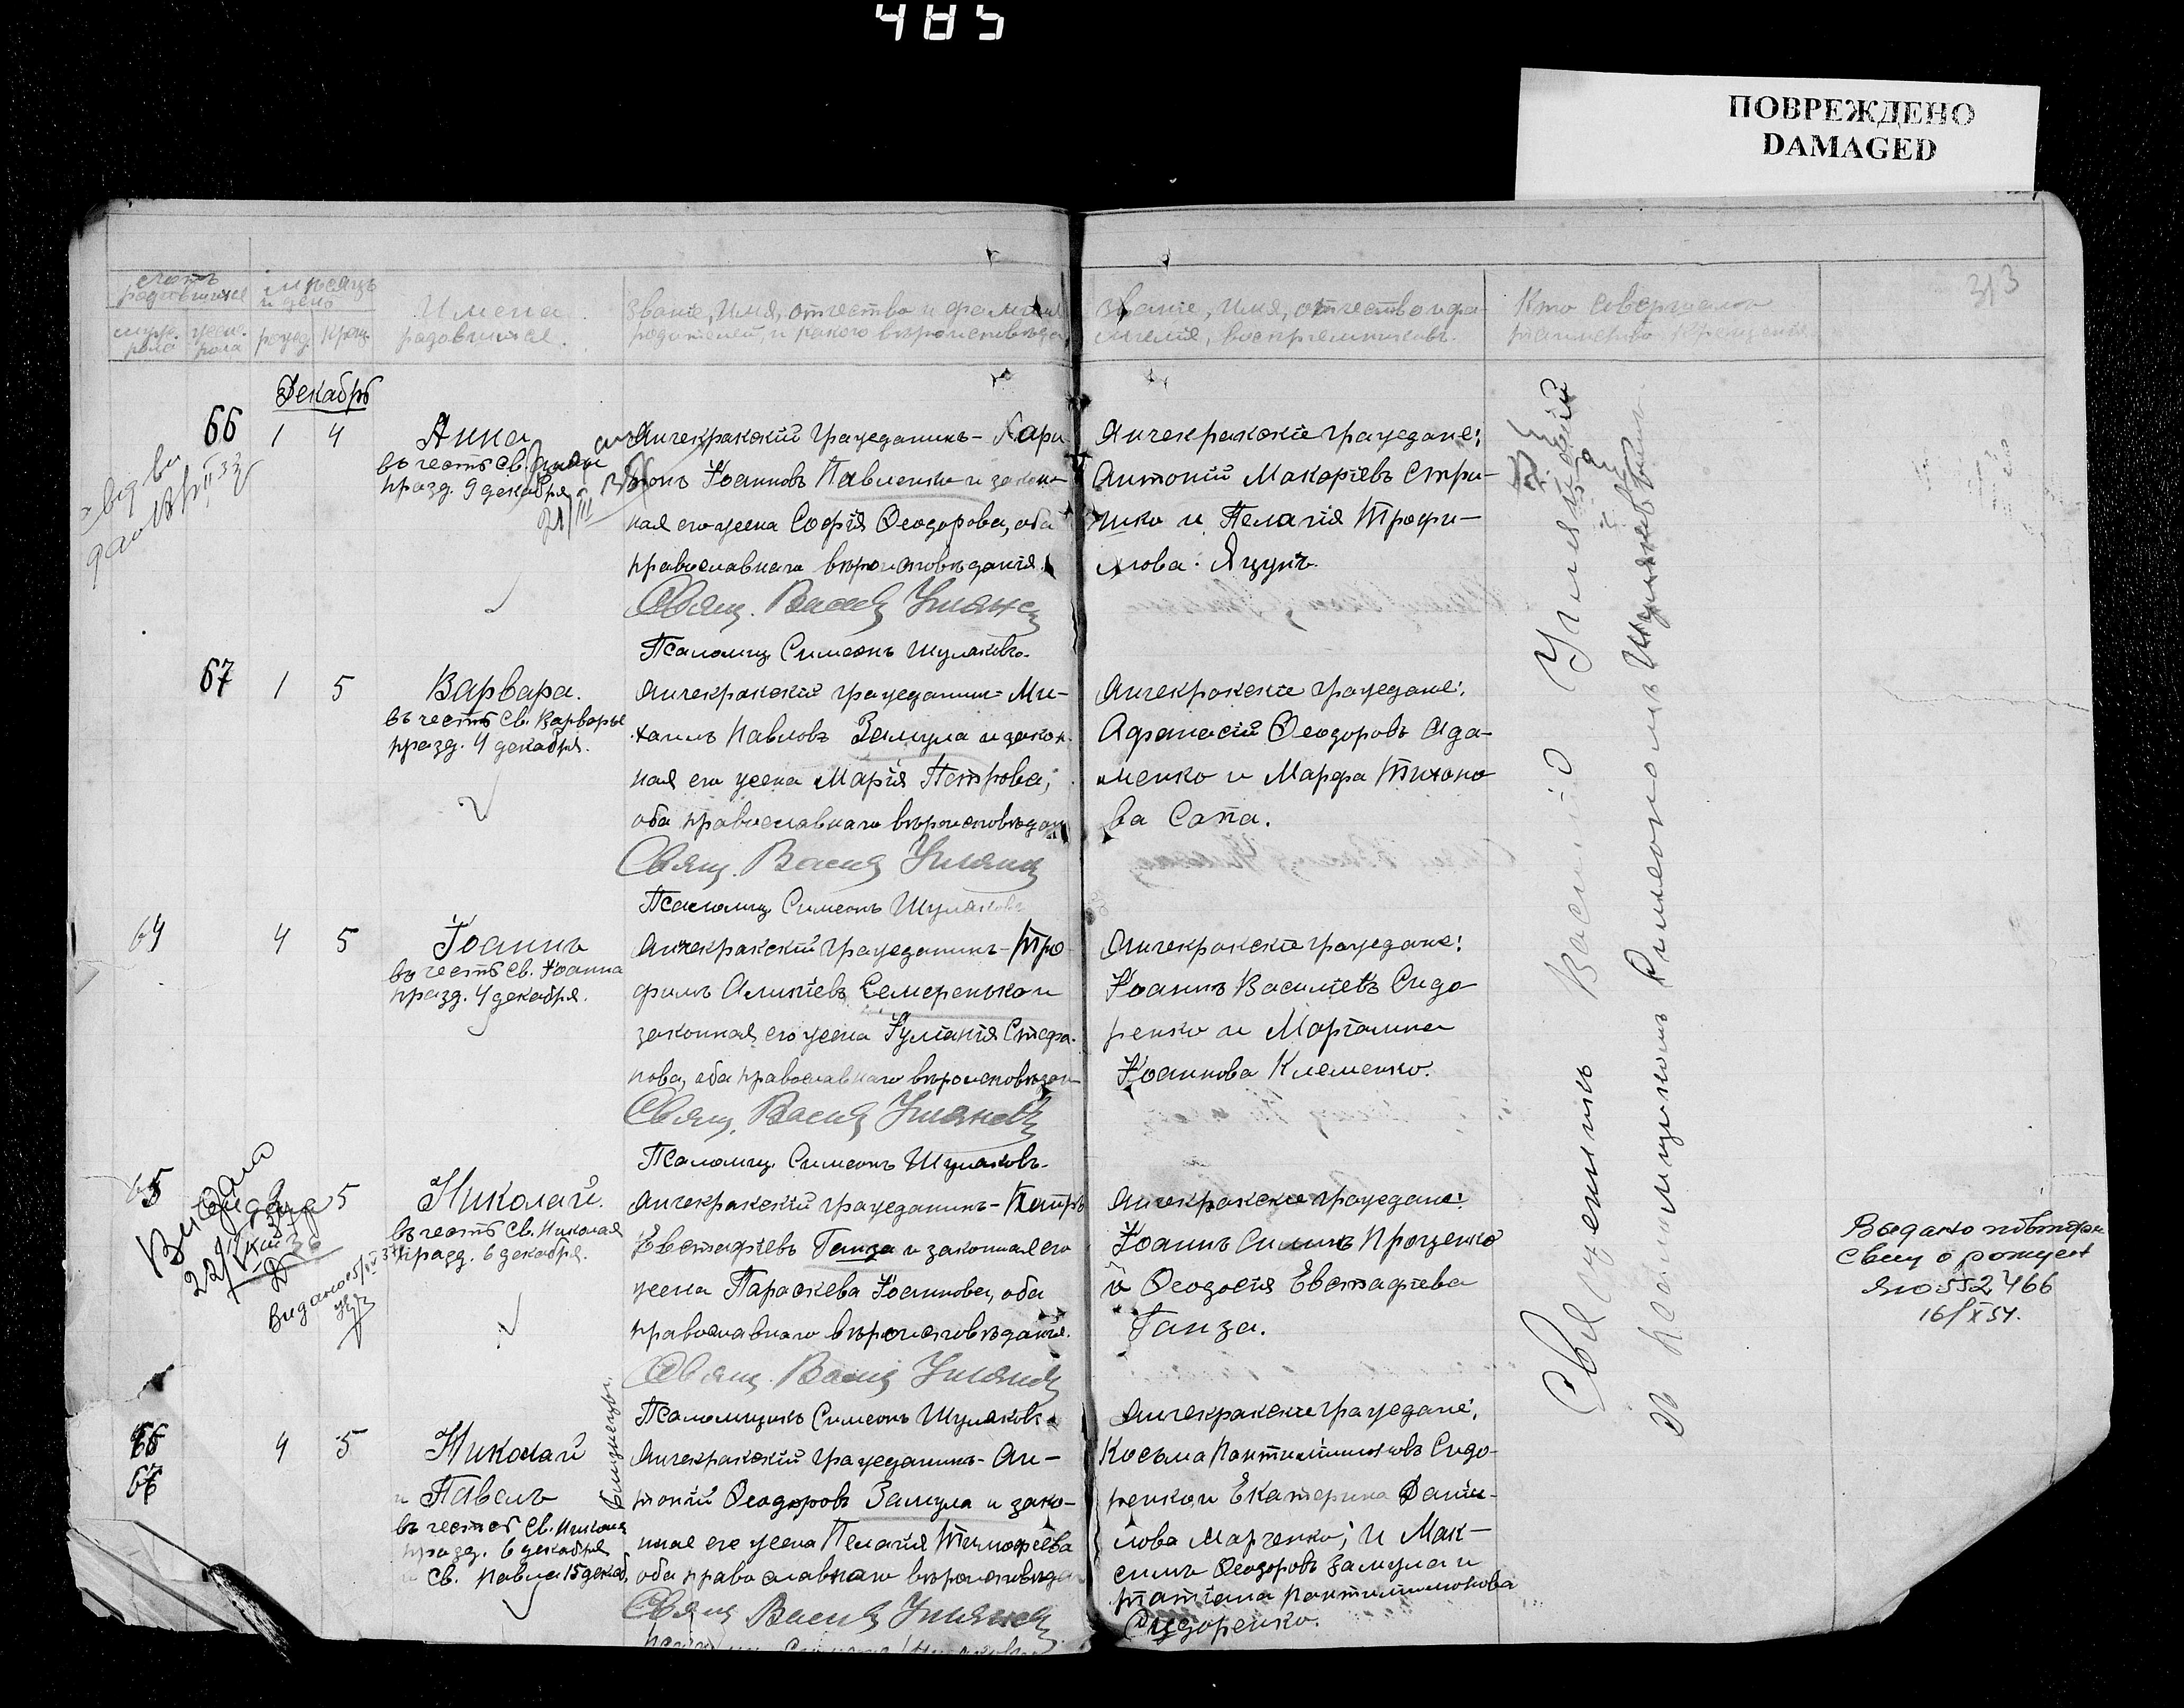 485
ПОВРЕЖДЕНО
DAMAGED
313
Счетъ родившихся
Мѣсяцъ и день
мужс. пола
женс. пола
рожд.
крещ.
Имена
родившихся.
Званіе, имя, отчество и фамилія
родителей, и какого вѣроисповѣда.
Званіе, имя, отчество и фа-
милія, воспріемниковъ.
Кто совершалъ
таинство крещенія
Декабрь
66 1 4
Анна
въ честь св. Анны
празд. 9 декабря
Анчекракскій гражданинъ - Хари-
тонъ Іоанновъ Павленко и закон-
ная его жена Софія Ѳеодорова, оба
православнаго вѣроисповѣданія.
Свящ. Василій Уманск
Псаломщ. Симеонъ Шуляковъ.
Анчекракскіе граждане:
Антоній Макаріевъ Стри-
жко и Пелагія Трофи-
мова Яцукъ.
67 1 5
Варвара.
въ честь св. Варвары
празд. 4 декабря.
Анчекракскій гражданинъ - Ми-
хаилъ Павловъ Замула и закон-
ная его жена Марія Петрова,
оба православнаго вѣроисповѣдан
Свящ. Василій Уманск
Псаломщ. Симеонъ Шуляковъ
Анчекракскіе граждане:
Афанасій Ѳеодоровъ Ада-
менко и Марфа Тихоно-
ва Сапа.
64 4 5
Іоаннъ
въ честь св. Іоанна
празд. 4 декабря.
Анчекракскій гражданинъ - Тро-
фимъ Алипіевъ Семеренко и
законная его жена Іуліанія Стефа-
нова, оба православнаго вѣроисповѣдан
Свящ. Василій Уманск
Псаломщ. Симеонъ Шуляковъ.
Анчекракскіе граждане:
Іоаннъ Василіевъ Сидо-
ренко и Маріамна
Іоаннова Клеменко.
65 5
Николай.
въ честь св. Николая
празд. 6 декабря.
Анчекракскій гражданинъ - Петръ
Евстафіевъ Ганза и законная его
жена Параскева Іоаннова, оба
православнаго вѣроисповѣданія.
Свящ. Василій Уманск
Псаломщикъ Симеонъ Шуляковъ
Анчекракскіе граждане:
Іоаннъ Силинъ Проценко
и Ѳеодосія Евстафіева
Ганза.
Выдано повторн
свид о рожден
ЯЮ 552466
16/X 54.
66 4 5
67
Николай
и Павелъ
въ честь св. Николая
празд. 6 декабря
и св. Павла 15 декаб.
близнецы.
Анчекракскій гражданинъ - Ан-
тоній Ѳеодоровъ Замула и зако-
нная его жена Пелагія Тимофеева
оба православнаго вѣроисповѣдан
Свящ Василій Уманск
Анчекракскіе граждане:
Косьма Пантилимоновъ Сидо-
ренко и Екатерина Даніи-
лова Марченко; и Мак-
симъ Ѳеодоровъ Замула и
Татіана Пантилимонова
Сидоренко.
Священникъ Василій Уманскій
съ псаломщикомъ Симеономъ Шуляковымъ